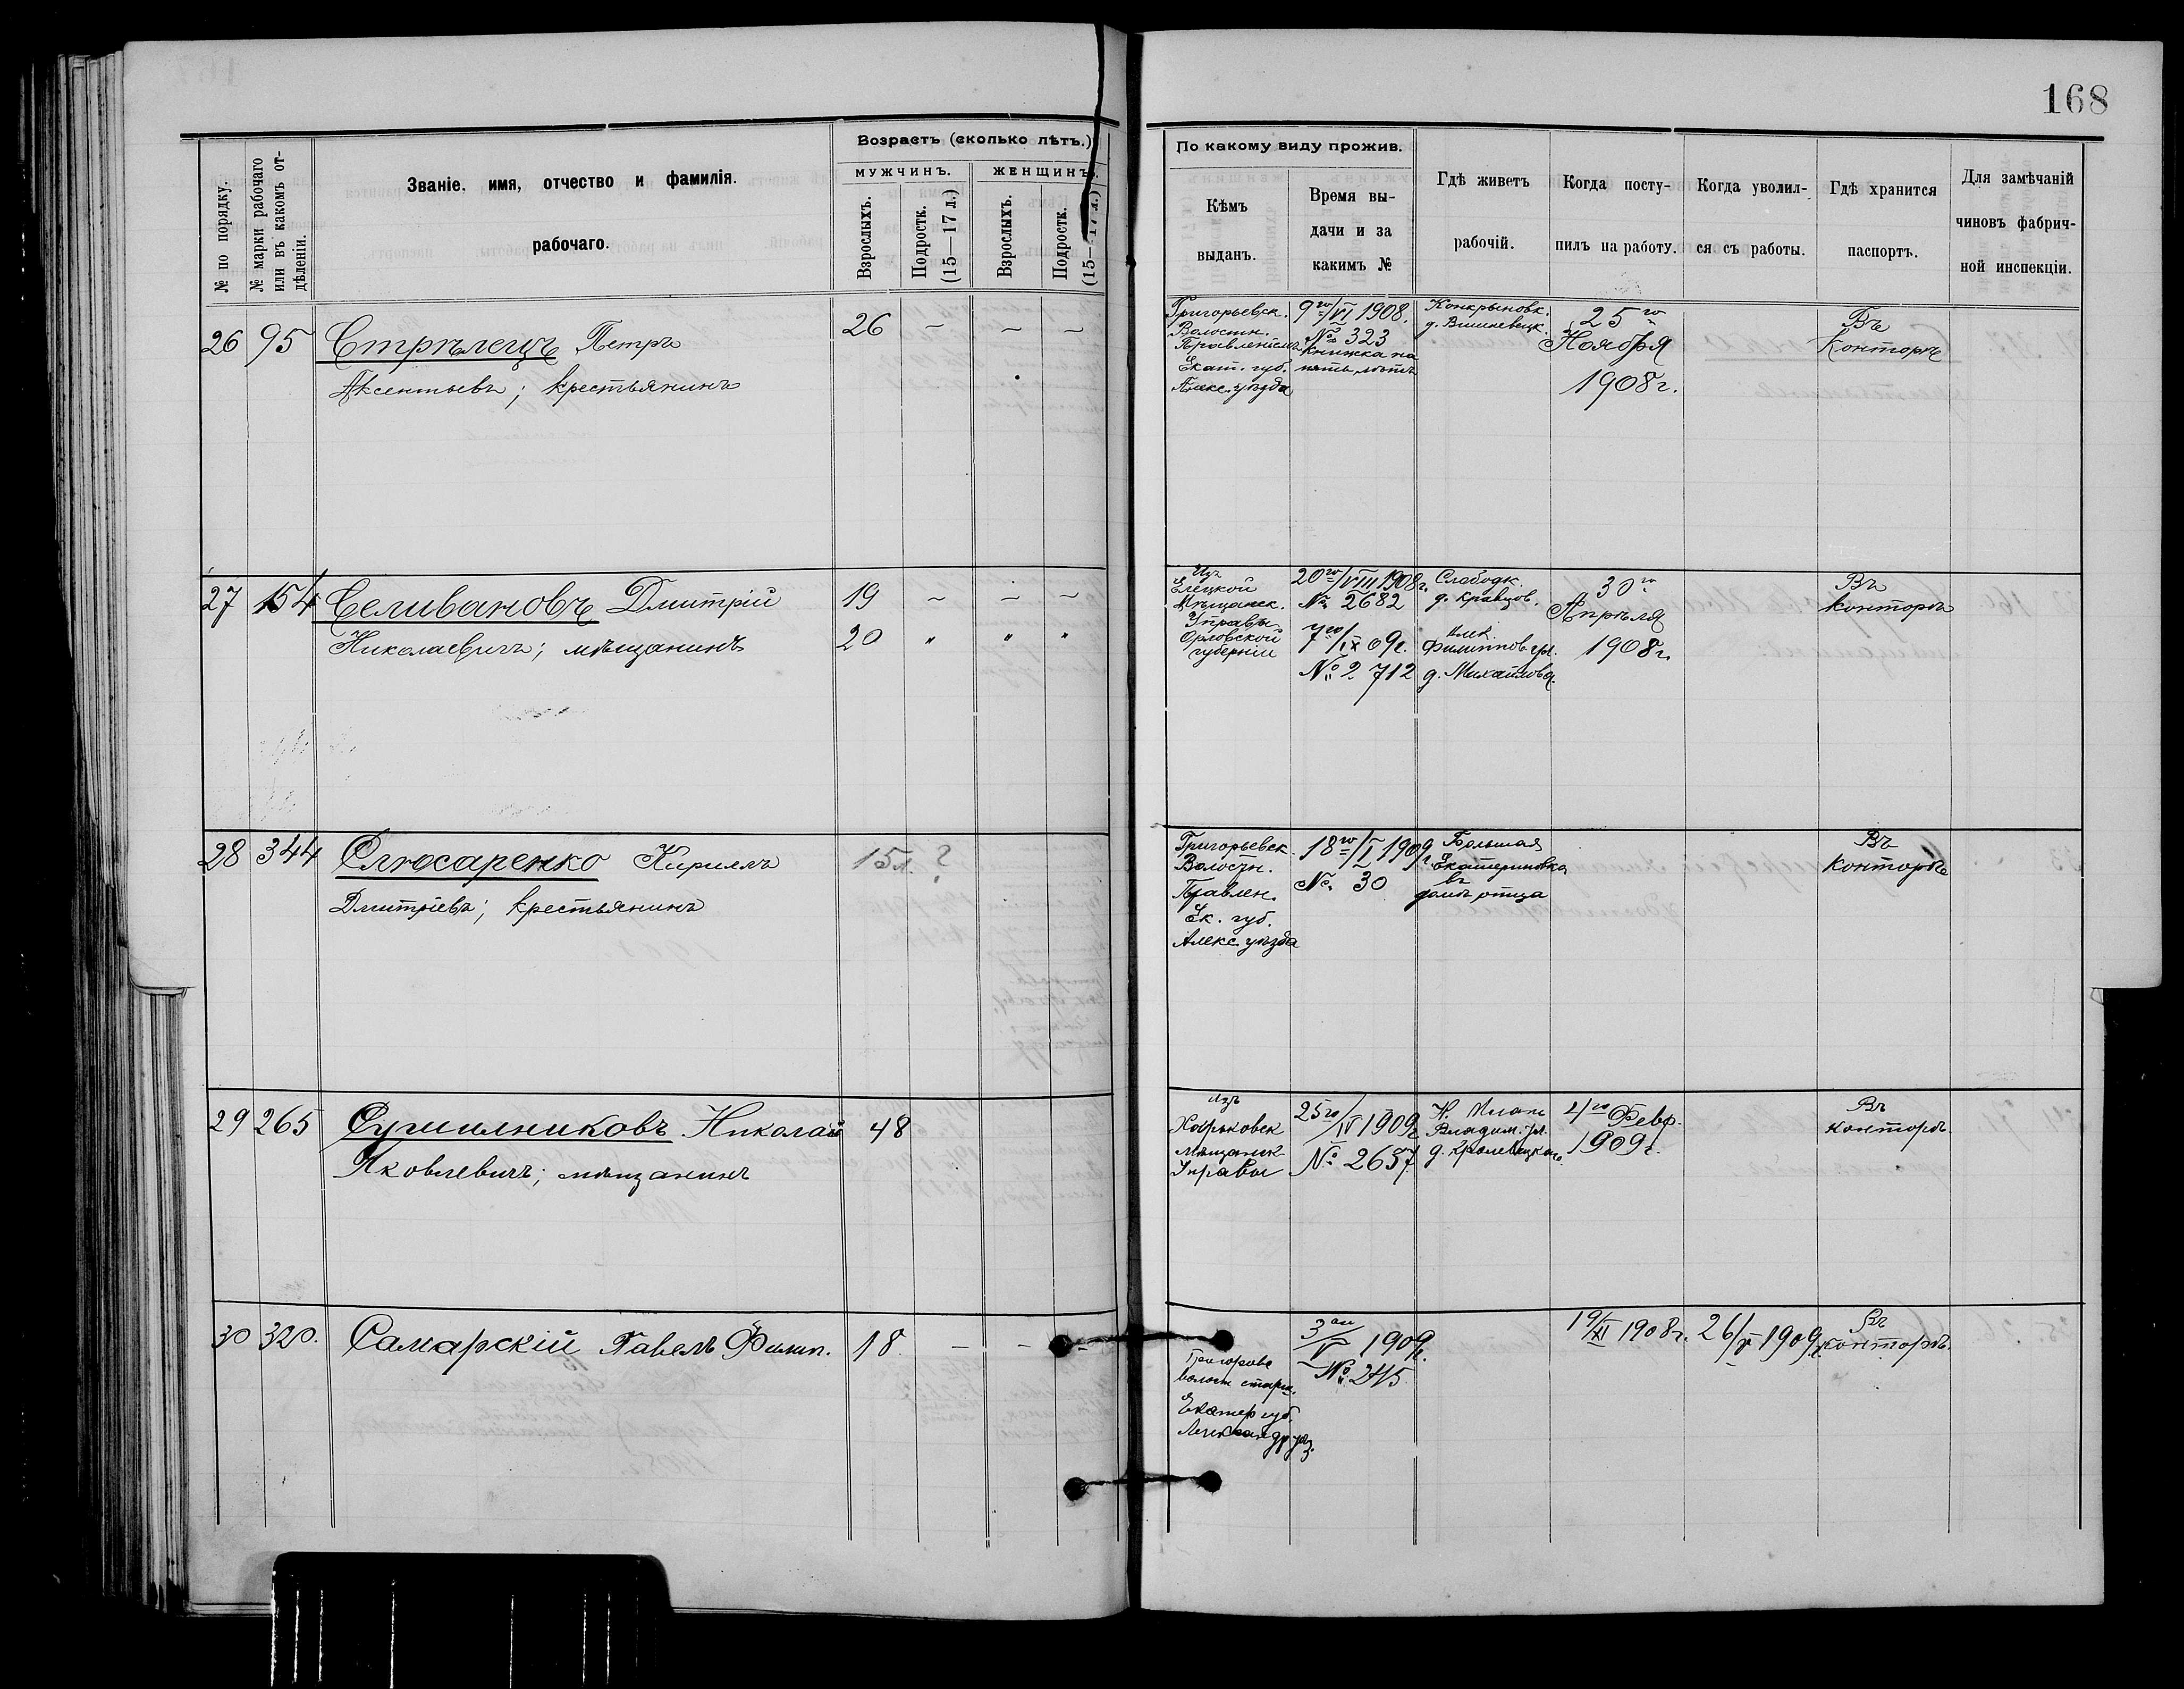 168
Возрастъ (сколько лѣтъ.)
МУЖЧИНЪ.
ЖЕНЩИНЪ.
№ по порядку.
№ марки рабочаго
или въ какомъ от-
дѣленіи.
Званіе, имя, отчество и фамилія.
рабочаго.
Взрослыхъ.
Подростк.
(15—17 л.)
Взрослыхъ.
Подростк.
(15—17 л.)
По какому виду прожив.
Кѣмъ
выданъ.
Время вы-
дачи и за
какимъ №
Гдѣ живетъ
рабочій.
Когда посту-
пилъ на работу.
Когда уволил-
ся съ работы.
Гдѣ хранится
паспортъ.
Для замѣчаній
чиновъ фабрич-
ной инспекціи.
26 95 Стрѣлецъ Петръ
Аксентьевъ; крестьянинъ
26 — — —
Григорьевск.
Волостн.
Правленіемъ
Екат. губ.
Алекс. уѣзда
9го/VI 1908.
№ 323
книжка на
пять лѣтъ
д. Вишневецк.
25го
Ноября
1908 г.
Въ
Конторѣ
27 154 Селивановъ Дмитрій
Николаевичъ; мѣщанинъ
19 — — —
20 " " "
Изъ
Елецкой
Мѣщанск.
Управы
Орловской
губерніи
20го/VIII 1908 г.
№ 2682
7го/IX 09 г.
№ 2712
Слободк.
д. Кравцов.
Филиппов ул.
д. Михайлова.
30го
Апрѣля
1908 г.
Въ
конторѣ
28 344 Слюсаренко Кириллъ
Дмитріевъ; крестьянинъ
15 л. ?
Григорьевск.
Волостн.
Правлен.
Ек. губ.
Алекс. уѣзда
18го/I 1909 г.
№ 30
Большая
Екатериновка
въ
домѣ отца
Въ
конторѣ
29 265 Сушилниковъ Николай
Яковлевичъ; мѣщанинъ
48
Изъ
Харьковск
Мѣщанск
Управы
25го/IV 1909 г.
№ 2657
Владим. ул.
д. Кролевецкаго
4го Февр.
1909 г.
Въ
конторѣ.
30 320. Самарскій Павелъ Филип.
18 — — —
волостн старш.
Екатер губ.
Александр уѣз.
3ли/IV 1909 г.
№ 245
19/XI 1908 г.
26/V 1909 г.
Въ
конторѣ.